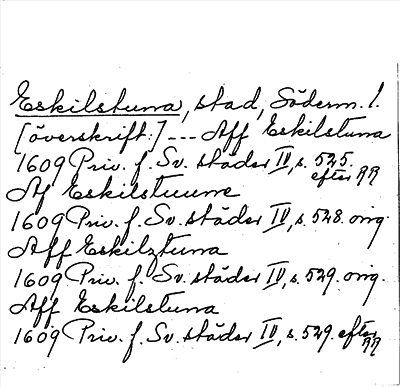 Eskilstuna, stad, Söderm. l.
[överskrift:] --- Aff Eskilstuna
1609 Priv. f. Sv. städer IV, s. 525.
efter
Af Eskilstuune
1609 Priv. f. Sv. städer IV, s. 528. orig.
Aff Eskilztuna
1609 Priv. f. Sv. städer IV, s. 529. orig.
Aff Eskilstuna
1609 Priv. f. Sv. städer IV, s. 529. efter